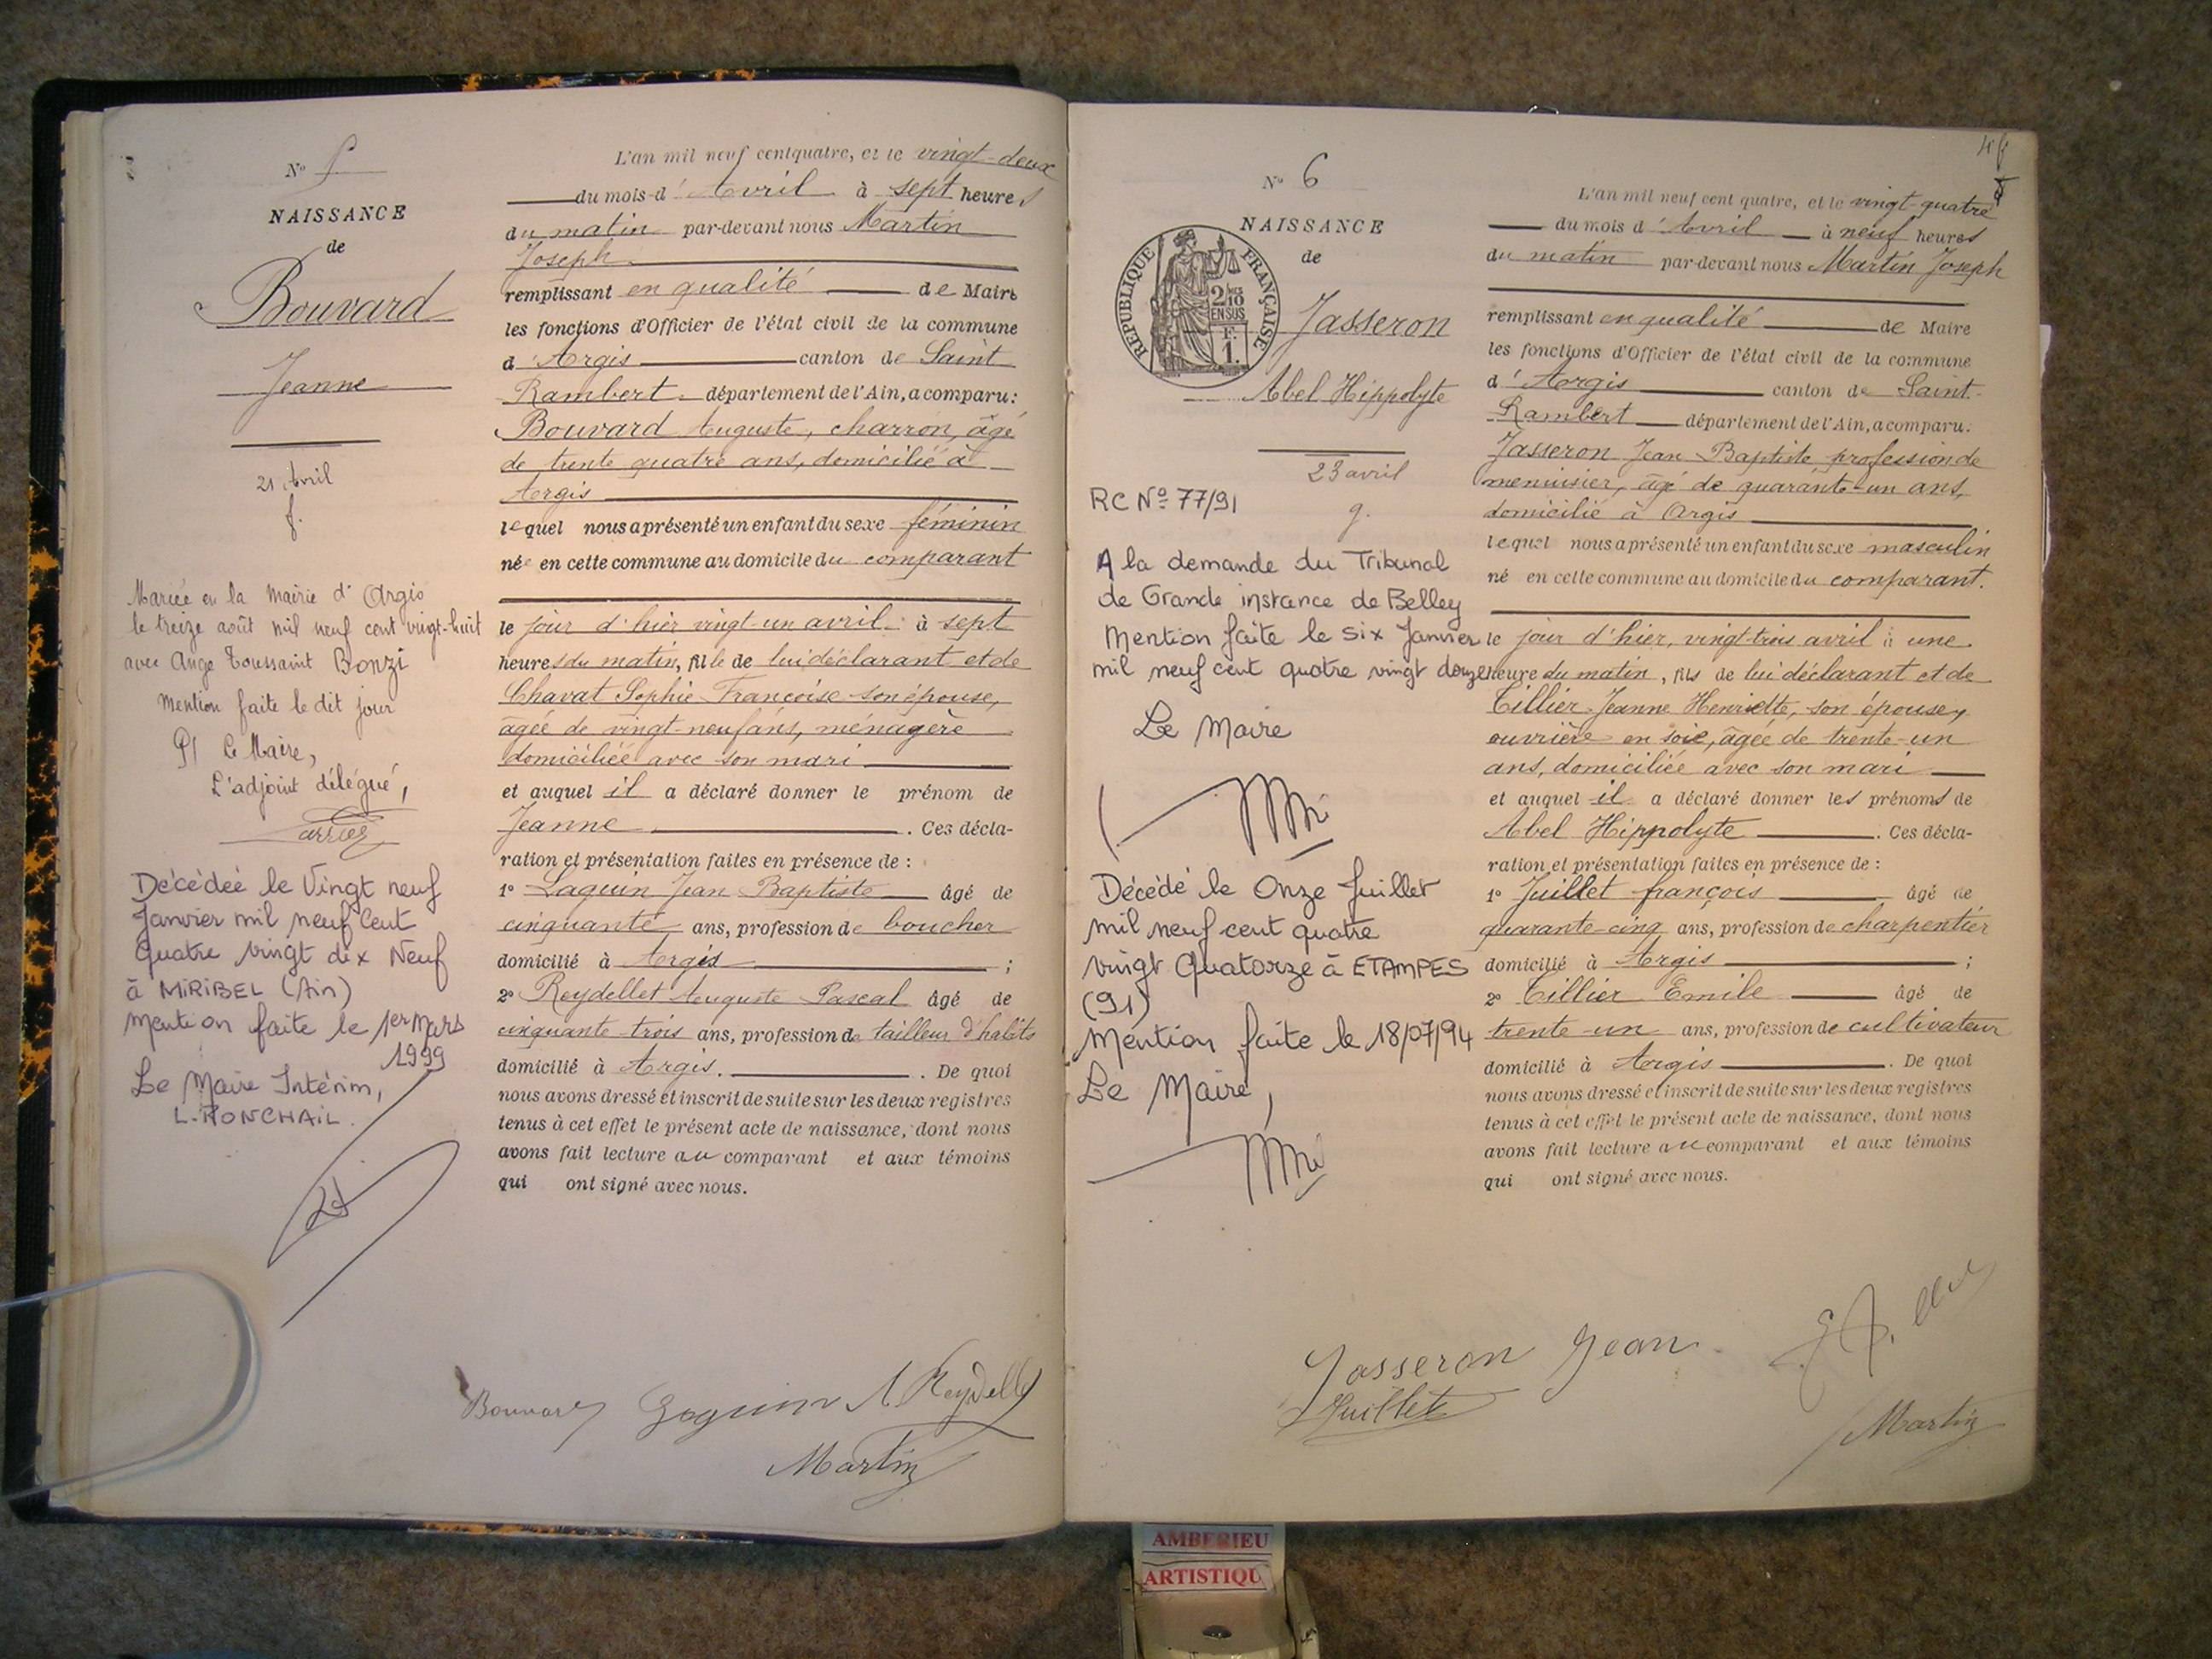 N° 5
NAISSANCE
de
Bouvard
Jeanne
21 Avril
f.
Mariée en la Mairie d'Argis
le treize août mil neuf cent vingt-huit
avec Ange Toussaint Bonzi
Mention faite le dit jour
P/ Le Maire,
L'adjoint délégué,
Décédée le Vingt neuf
Janvier mil neuf Cent
Quatre vingt dix Neuf
à MIRIBEL (Ain)
Mention faite le 1er Mars
1999
Le Maire Intérim,
L. RONCHAIL.
L'an mil neuf cent quatre, et le vingt-deux
du mois d'Avril à sept heures
du matin par-devant nous Martin
Joseph
remplissant en qualité de Maire
les fonctions d'Officier de l'état civil de la commune
d'Argis canton de Saint
Rambert département de l'Ain, a comparu:
Bouvard Auguste, charron, âgé
de trente quatre ans, domicilié à
Argis
lequel nous a présenté un enfant du sexe féminin
née en cette commune au domicile du comparant
le jour d'hier vingt-un avril à sept
heures du matin, fille de lui déclarant et de
Chavat Sophie Françoise son épouse,
âgée de vingt-neuf ans, ménagère
domiciliée avec son mari
et auquel il a déclaré donner le prénom de
Jeanne . Ces décla-
ration et présentation faites en présence de :
1° Jean Baptiste âgé de
cinquante ans, profession de boucher
domicilié à Argis ;
2° Reydellet Auguste Pascal âgé de
cinquante-trois ans, profession de tailleur d'habits
domicilié à Argis. . De quoi
nous avons dressé et inscrit de suite sur les deux registres
tenus à cet effet le présent acte de naissance, dont nous
avons fait lecture au comparant et aux témoins
qui ont signé avec nous.
Bouvard A Reydellet
Martin
4
N° 6
NAISSANCE
de
REPUBLIQUE FRANÇAISE
2/10
EN SUS
F.
1.
Jasseron
Abel Hippolyte
23 avril
g.
RC N° 77/91
A la demande du Tribunal
de Grande instance de Belley
Mention faite le six Janvier
mil neuf cent quatre vingt douze
Le Maire
Décédé le Onze Juillet
mil neuf cent quatre
vingt Quatorze à ETAMPES
(91)
Mention faite le 18/07/94
Le Maire,
L'an mil neuf cent quatre, et le vingt-quatre
du mois d'Avril à neuf heures
du matin par-devant nous Martin Joseph
remplissant en qualité de Maire
les fonctions d'Officier de l'état civil de la commune
d'Argis canton de Saint-
Rambert département de l'Ain, a comparu.
Jasseron Jean Baptiste profession de
menuisier, âgé de quarante-un ans,
domicilié à Argis
lequel nous a présenté un enfant du sexe masculin
né en cette commune au domicile du comparant.
le jour d'hier, vingt-trois avril à une
heure du matin, fils de lui déclarant et de
Tillier Jeanne Henriette, son épouse,
ouvrière en soie, âgée de trente-un
ans, domiciliée avec son mari
et auquel il a déclaré donner les prénoms de
Abel Hippolyte . Ces décla-
ration et présentation faites en présence de :
1° Juillet françois âgé de
quarante-cinq ans, profession de charpentier
domicilié à Argis ;
2° Tillier Emile âgé de
trente-un ans, profession de cultivateur
domicilié à Argis . De quoi
nous avons dressé et inscrit de suite sur les deux registres
tenus à cet effet le présent acte de naissance, dont nous
avons fait lecture au comparant et aux témoins
qui ont signé avec nous.
Jasseron Jean
Juillet
Martin
AMBERIEU
ARTISTIQU